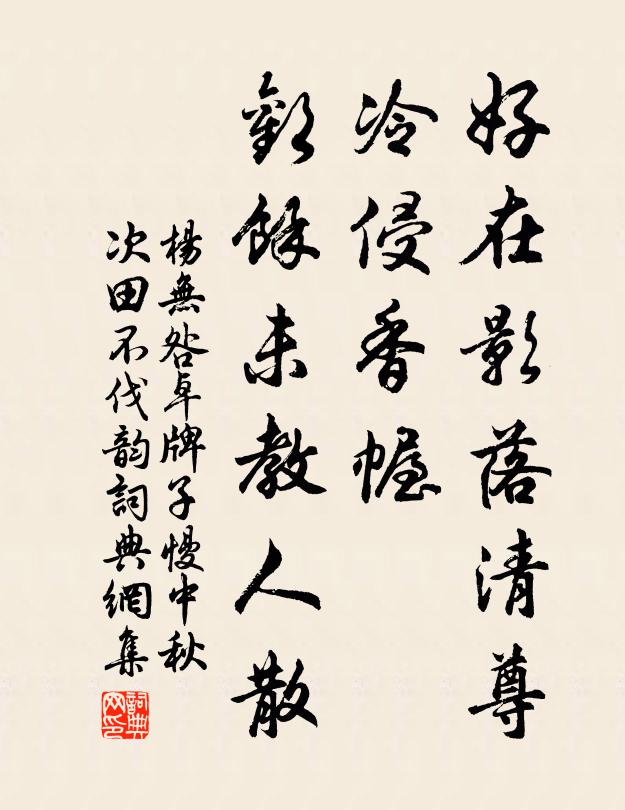 好在影落清尊
冷侵香幄
歡餘未教人散
楊無咎卓牌子慢中秋
次田不伐韵詞典網集
詞典網印